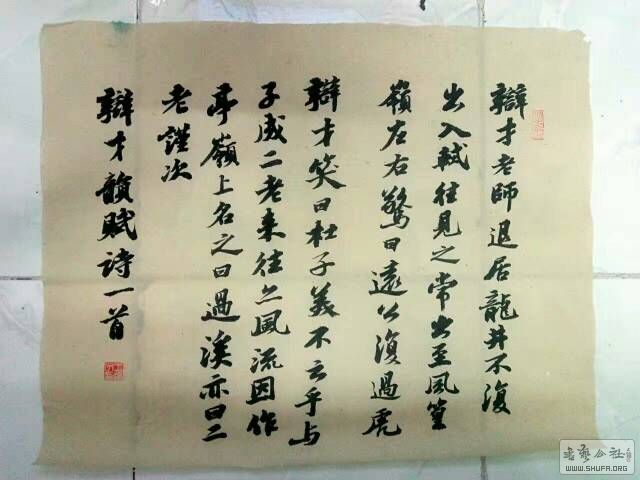 辯才老師退居龍井不復
出入軾往見之常出至風篁
嶺左右驚曰遠公復過虎
辯才笑曰杜子美不云乎与
子成二老来往亦風流因作
亭嶺上名之曰過溪亦曰二
老謹次
辯才韻賦诗一首
書藝公社
WWW.SHUFA.ORG